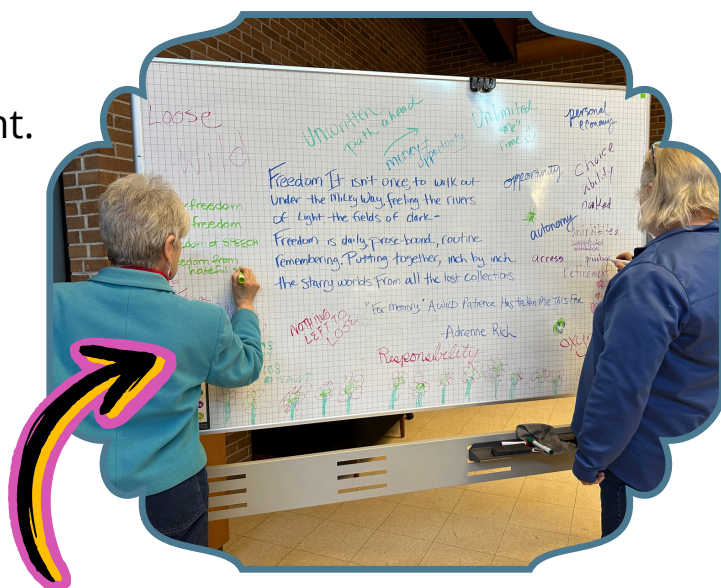 nt.
Loose
Wild
Unwritten
path ahead
money +
opportunity
Unlimited
Time
personal
economy
opportunity
Choice
ability
naked
autonomy
access
Retirement
freedom
freedom
dom of SPEECH
edom from
hateful
Freedom It isn't once, to walk out
Under the Milky Way, feeling the rivers
of Light the fields of dark-
Freedom is daily, prose-bound, routine
remembering. Putting together, inch by inch
the starry worlds. From all the lost collections
"For Memory," A Wild Patience Has taken Me This Far
-Adrienne Rich
NOTHING
LEFT TO
LOSE
Responsibility